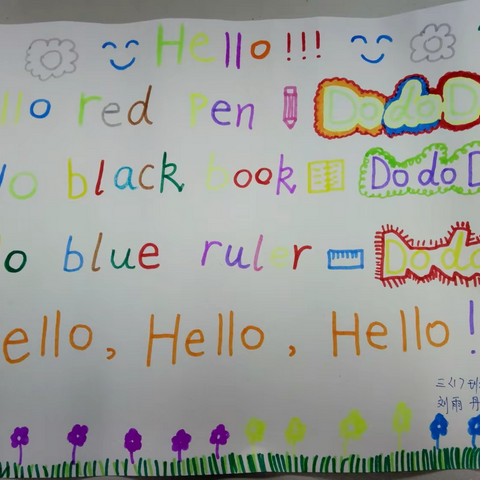 Hello!!!
llo red pen DodoD
lo black book DodoD
lo blue ruler Dodo
ello, Hello, Hello!
三〈1〉班
刘雨丹